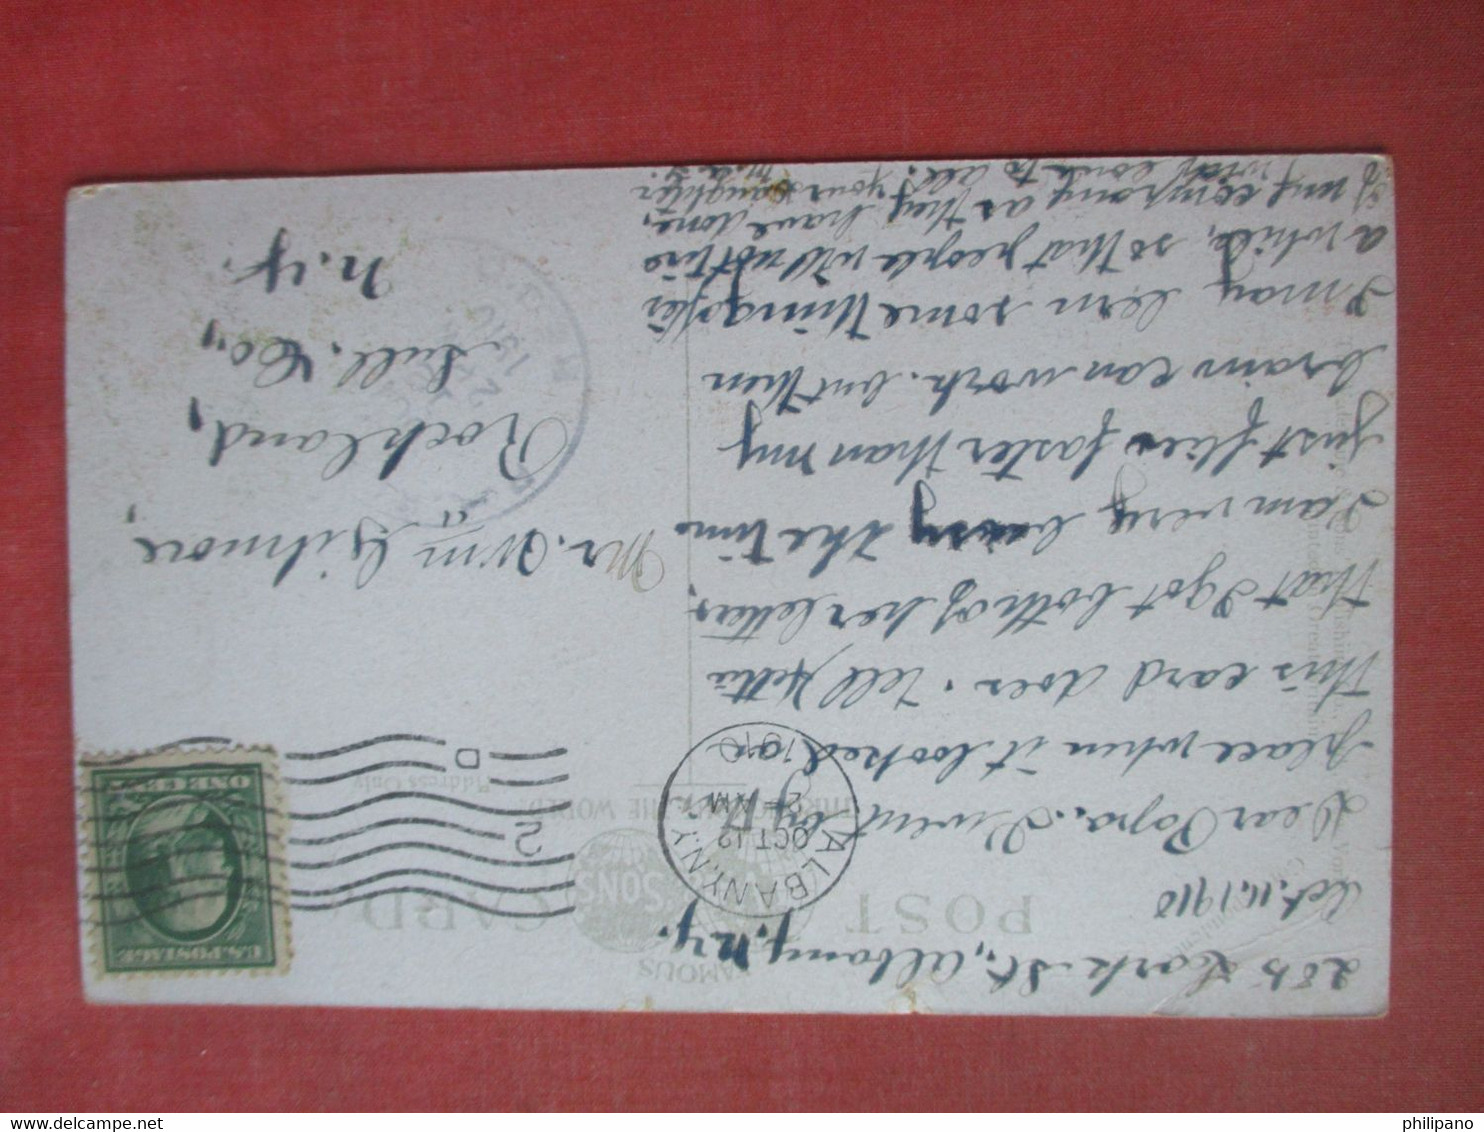 205 Lark St., Albany, N.Y.
Oct. 11, 1910
Dear Papa. I went by
place when it looked as
this card does. Tell Hettie
that I got both of her letters.
I am very busy the time
just flies faster than my
brain can work. but then
I may lern some thing after
a while, so that people will not tire
of my company as they have done,
With love to all. Your daughter
FAMOUS
POST CARD
& SONS
THROUGHOUT THE WORLD
Address Only
ALBANY, N.Y.
OCT 12
2 - AM
1910
D
2
U.S. POSTAGE
ONE CENT
Mr. Wm. Gilmore,
Rockland,
Sull. Co.,
N.Y.
1910
philipano